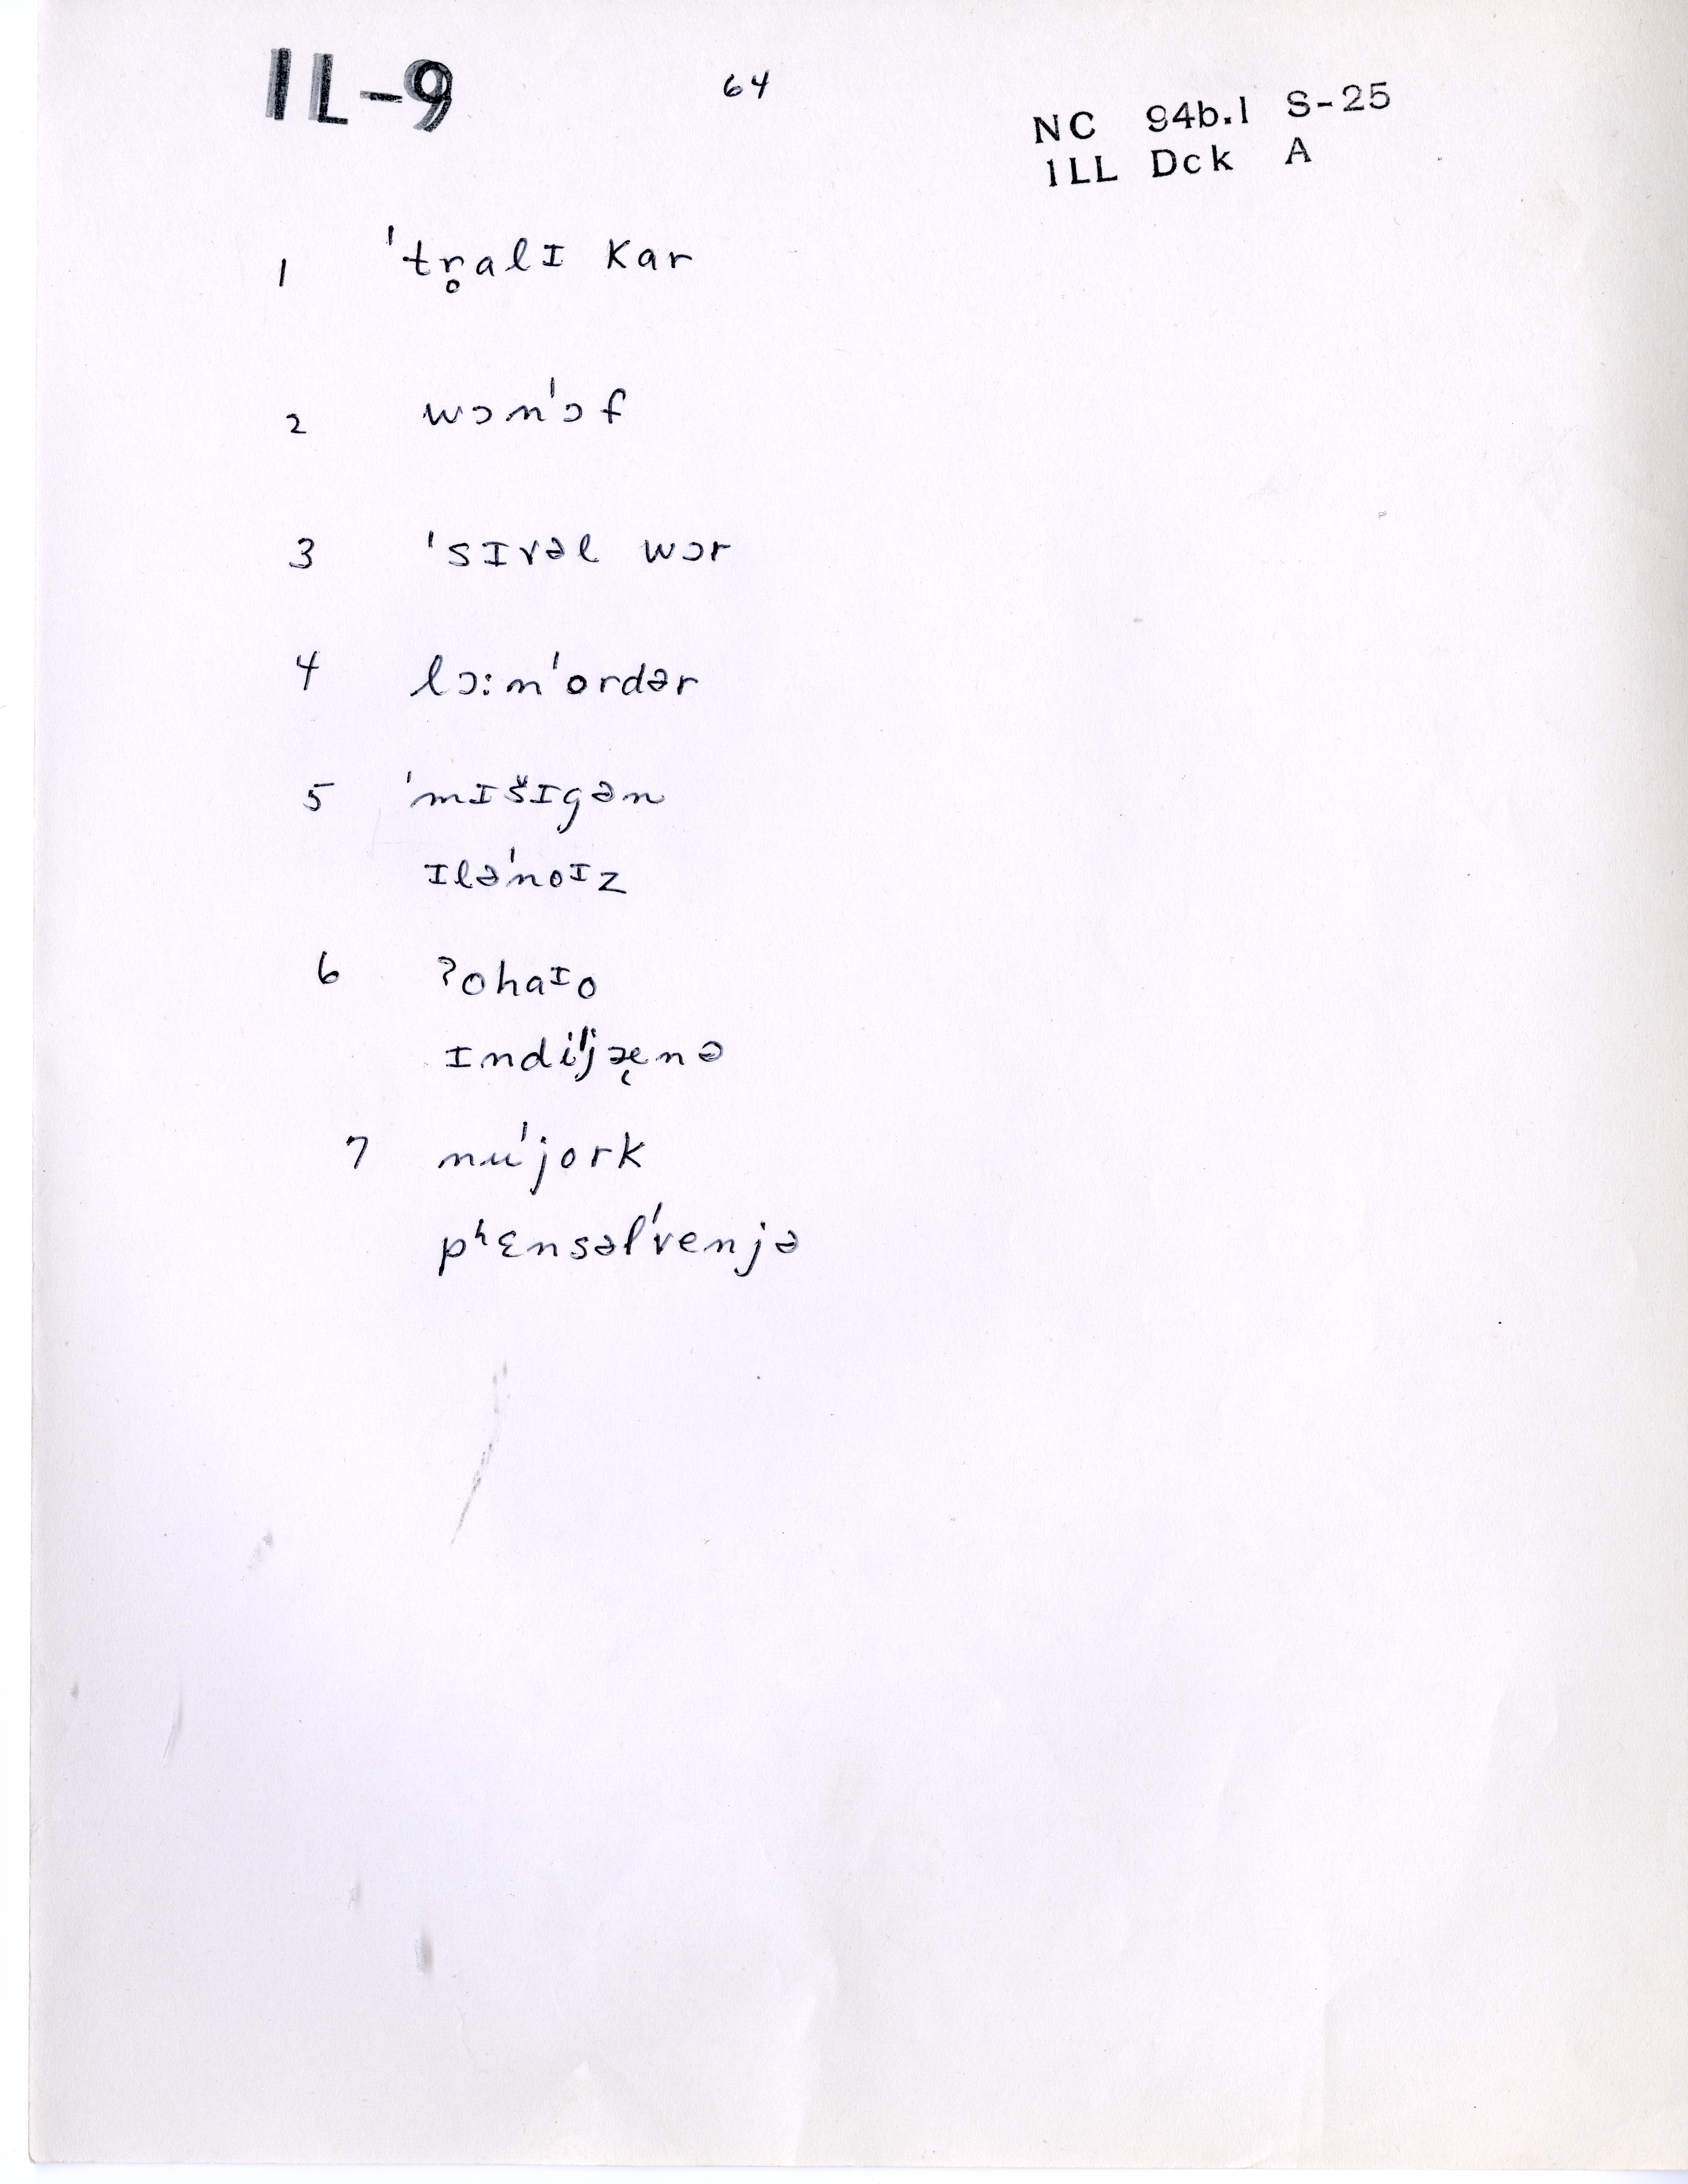 IL-9
64
NC 94b.1 S-25
ILL Dck A
1 'tr̥alɪ kar
2 wɔn'ɔf
3 'sɪvəl wɔr
4 lɔ:n'ordər
5 'mɪšɪgən
ɪlə'noɪz
6 ʔohaɪo
ɪndi'jæ̨nə
7 nu'jork
pʰɛnsəl'venjə